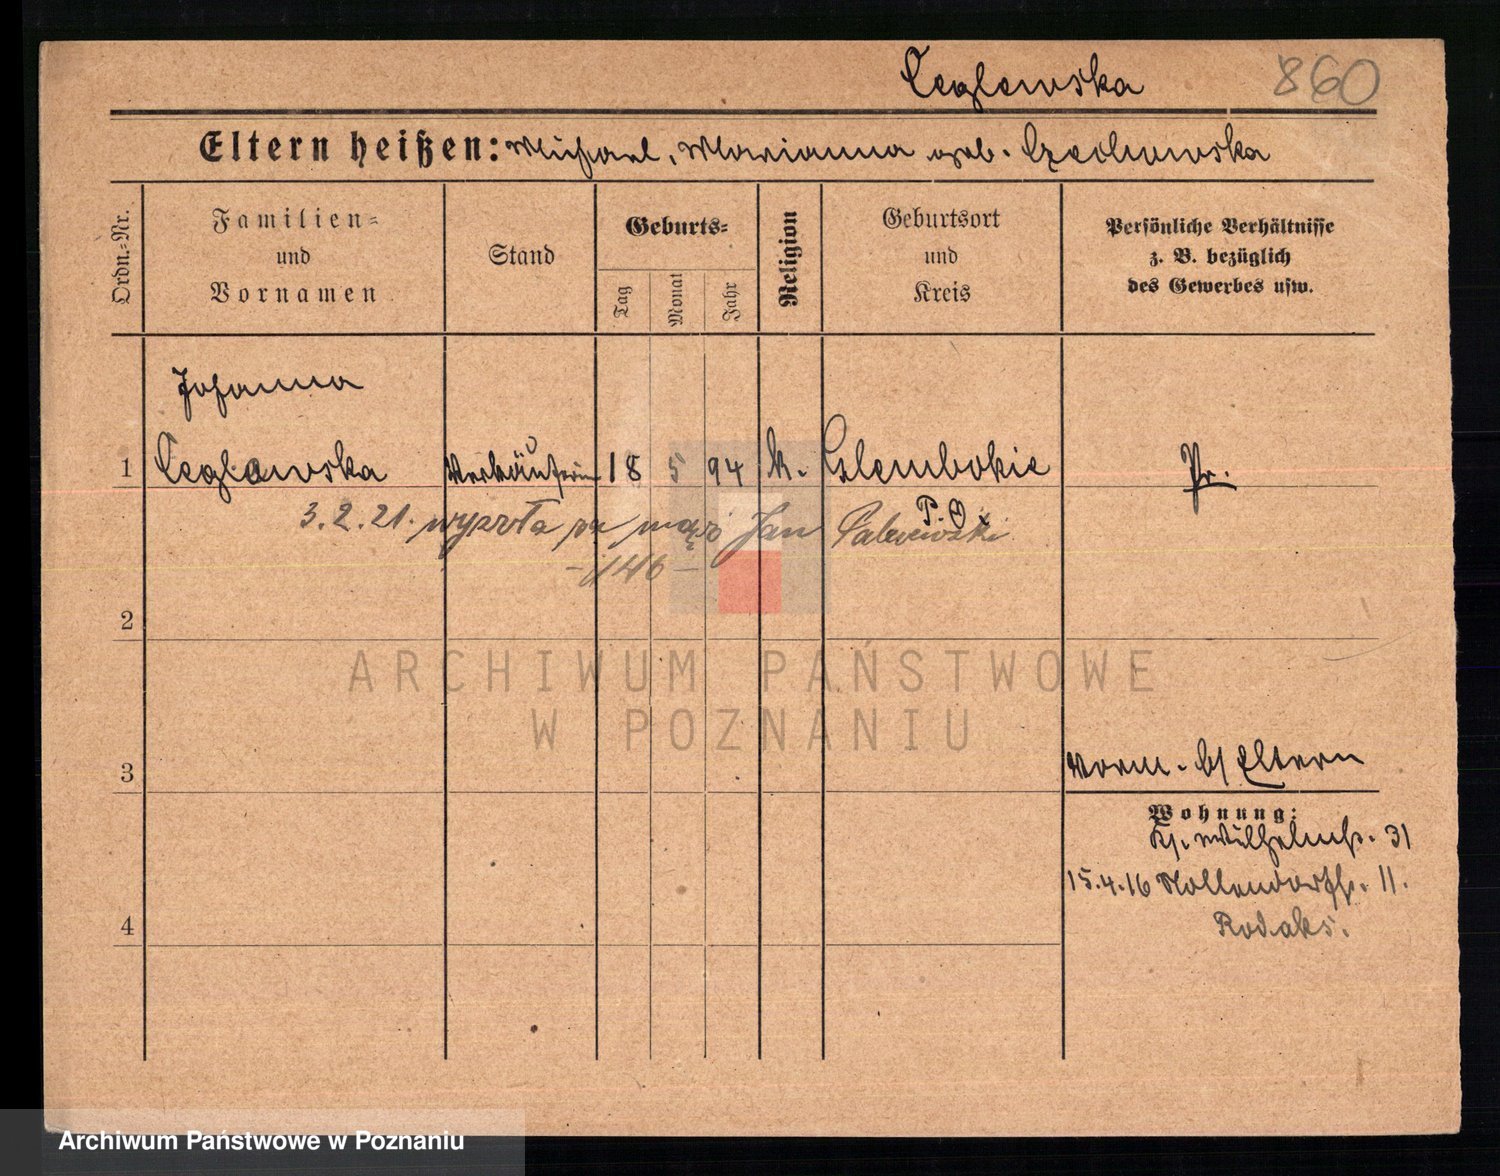 Ceglewska 860
Eltern heißen: Michael, Marianna geb. Czechowska
Ordn.-Nr.
Familien- und Vornamen
Stand
Geburts-
Tag
Monat
Jahr
Religion
Geburtsort und Kreis
Persönliche Verhältnisse z. B. bezüglich des Gewerbes usw.
Johanna
1 Ceglewska Verkäuferin 18 5 94 k. Glembokie Pr.
P. O
3.2.21. wyszła za mąż Jan
-146-
2
ARCHIWUM PAŃSTWOWE
W POZNANIU
3
vorm. b/ Eltern
Wohnung:
Kl. Wilhelmstr. 31
15.4.16 Nollendorfstr. 11.
Rodaks.
4
Archiwum Państwowe w Poznaniu